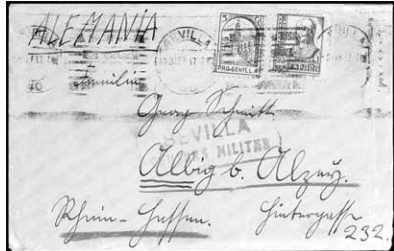 ALEMANIA
SEVILLA
PRO-SEVILLA
Familie
Georg Schmitt
SEVILLA
MILITAR
Albig b. Alzey.
Rhein-Hessen. Hintergasse
232.